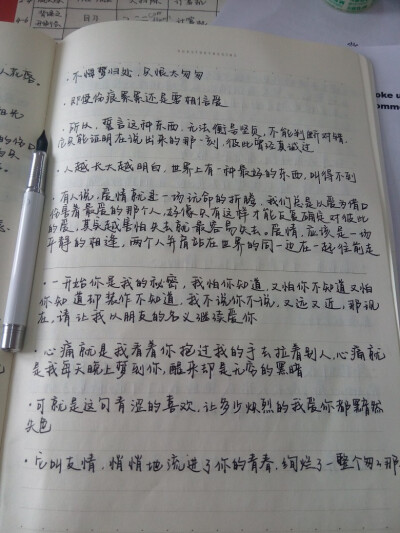 · 不悔梦归处,只恨太匆匆
· 即使伤痕累累还是要相信爱
· 所以,誓言这种东西,无法衡量坚贞,不能判断对错,
它只能证明在说出来的那一刻,彼此曾经真诚过
· 人越长大越明白,世界上有一种最好的东西,叫得不到
· 有人说,爱情就是一场玩命的折腾,我们总是以爱为借口
伤害着最爱的那个人,好像只有这样才能反复确定对彼此
的爱,其实越是怕失去就最容易失去。爱情,应该是一场
平静的相逢,两个人并肩站在世界的同一边在一起往前走
· 一开始你是我的秘密,我怕你知道,又怕你不知道又怕
你知道却装作不知道,我不说你不说,又远又近,那现
在,请让我以朋友的名义继续爱你
· 心痛就是我看着你抱过我的手去拉着别人,心痛就
是我每天晚上梦到你,醒来却是无労的黑暗
· 可就是这句青涩的喜欢,让多少炽烈的我爱你都黯然
失色
· 它叫友情,悄悄地流进了你的青春,绚烂了一整个匆匆那
oke u
omme